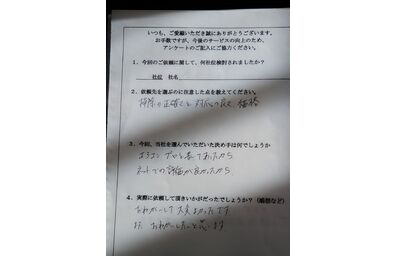 いつも、ご愛顧いただき誠にありがとうございます。
お手数ですが、今後のサービスの向上のため、
アンケートのご記入にご協力ください。
1、今回のご依頼に関して、何社位検討されましたか?
社位 社名
2、依頼先を選ぶのに注意した点を教えてください。
掃除の正確さと対応の良さ、価格
3、今回、当社を選んでいただいた決め手は何でしょうか
ネットでの評価が良かったから
4、実際に依頼して頂きいかがだったでしょうか?(感想など)
おねがいして大変よかったです
また おねがいしたいと思います